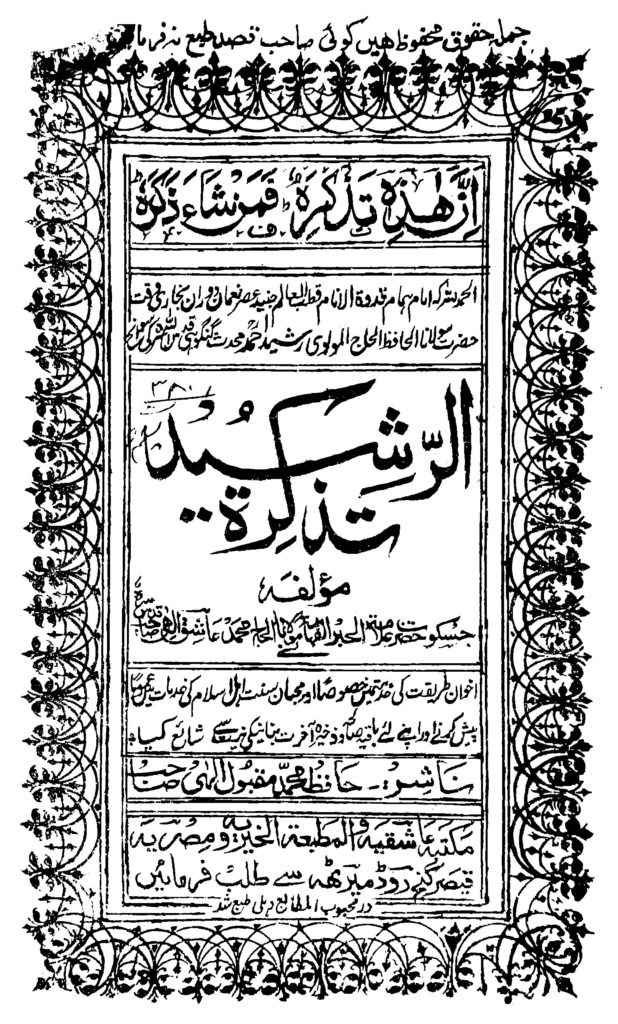 جملہ حقوق محفوظ ھیں کوئی صاحب قصد طبع نہ فرمائیں
اِنَّ هٰذِهٖ تَذْكِرَةٌ فَمَنْ شَاءَ ذَكَرَهٗ
الحمد للہ کہ امام ہمام قدوۃ الانام قطب العالم جنید عصر نعمان دوران بخاری وقت
حضرت مولانا الحافظ الحاج المولوی رشید احمد محدث گنگوہی قدس اللہ سرہ کی
تذکرۃ
الرّشید
مؤلفہ
جسکو حضرت علامۃ الحبر الفہامہ مولانا الحاج محمد عاشق الٰہی صاحب قدس سرہ نے
اخوان طریقت کی خدمت میں خصوصًا اور محبان سنت اہل اسلام کی خدمات میں عمومًا
پیش کرنے اور اپنے لئے باقیصالحہ و ذخیرہ آخرت بنانیکی غرض سے شائع کیا
ناشر:- حافظ محمد مقبول الٰہی صاحب
مکتبہ عاشقیہ و المطبعۃ الخیریہ و مصریہ
قیصر گنج روڈ میرٹھ سے طلب فرمائیں
در محبوب المطابع دہلی طبع شد